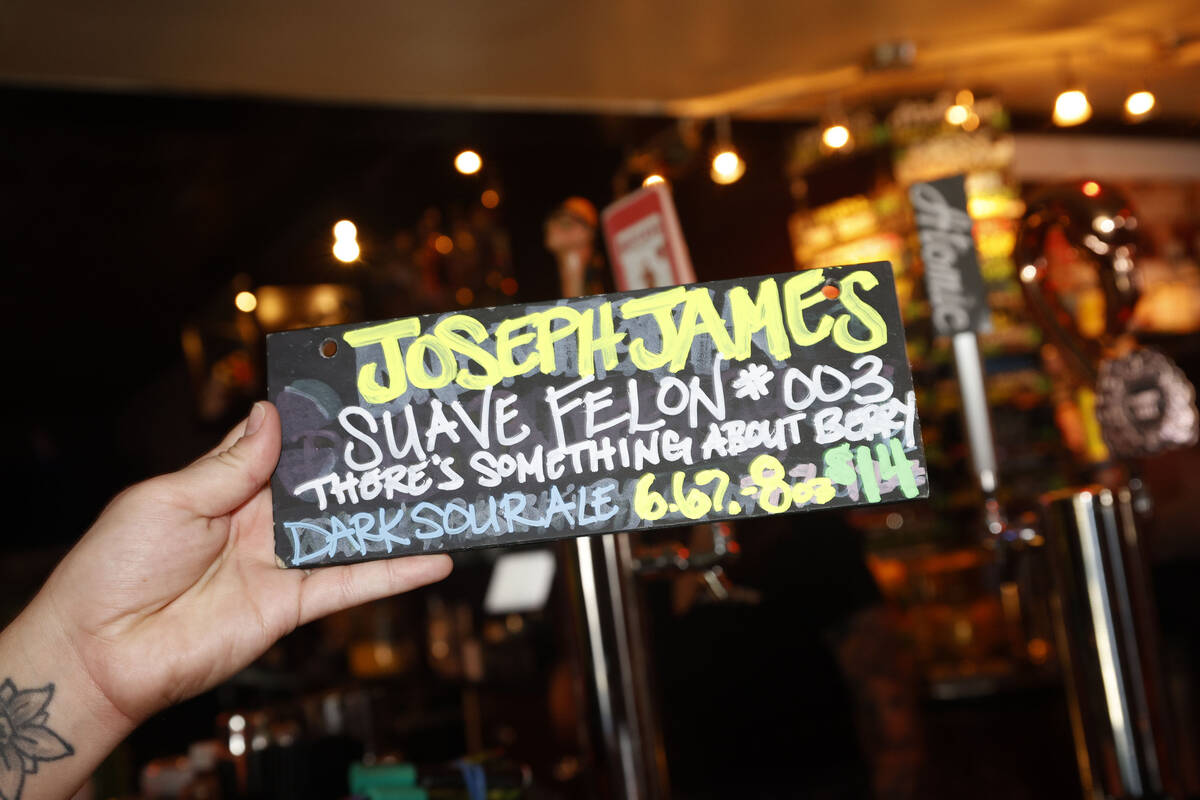 JOSEPH JAMES
SUAVE FELON * 003
THERE'S SOMETHING ABOUT BERRY
DARK SOUR ALE 6.67. -8oz $14
Atomic